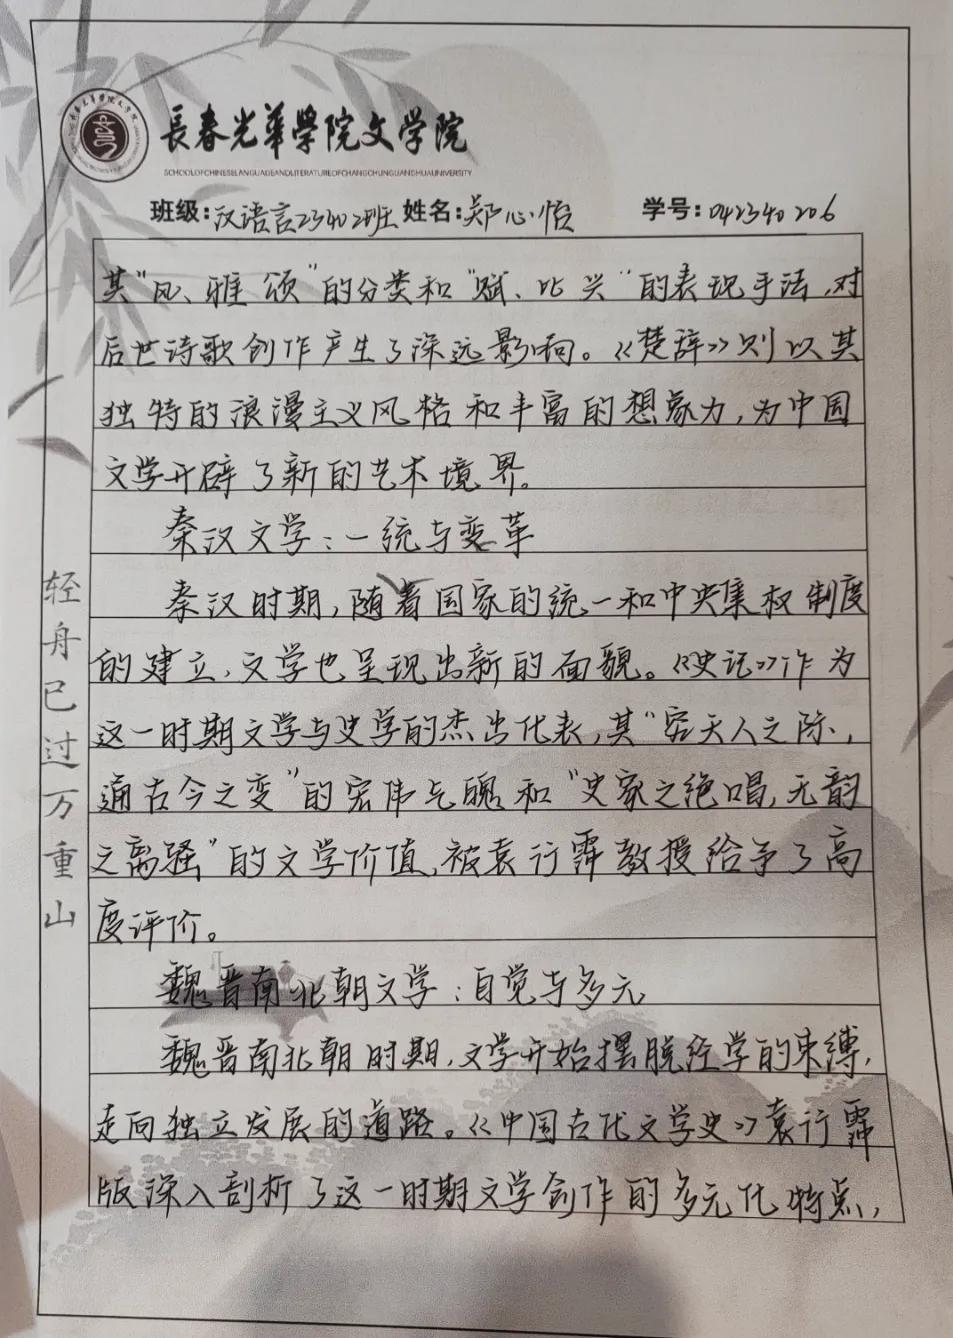 長春光華學院文学院
SCHOOLOFCHINESELANGUAGEANDLITERATUREOFCHANGCHUNGUANGHUAUNIVERSITY
班级:汉语言23402班 姓名:郑心怡 学号:042340206
其“风、雅颂”的分类和“赋、比兴”的表现手法,对
后世诗歌创作产生了深远影响。《楚辞》则以其
独特的浪漫主义风格和丰富的想象力,为中国
文学开辟了新的艺术境界。
秦汉文学:一统与变革
秦汉时期,随着国家的统一和中央集权制度
的建立,文学也呈现出新的面貌。《史记》作为
这一时期文学与史学的杰出代表,其“究天人之际,
通古今之变”的宏伟气魄和“史家之绝唱,无韵
之离骚”的文学价值,被袁行霈教授给予了高
度评价。
魏晋南北朝文学:自觉与多元
魏晋南北朝时期,文学开始摆脱经学的束缚,
走向独立发展的道路。《中国古代文学史》袁行霈
版深入剖析了这一时期文学创作的多元化特点,
轻舟已过万重山